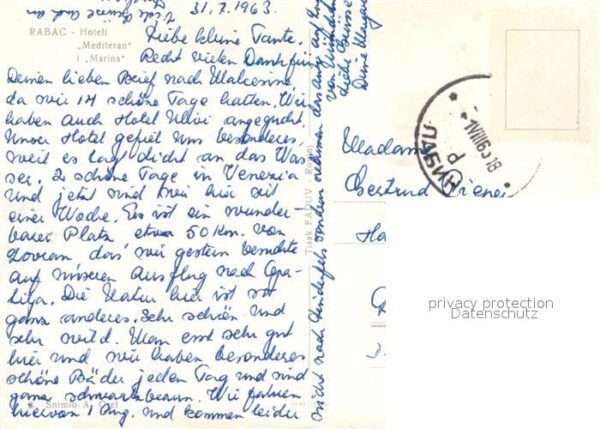 31.7.1963.
RABAC - Hoteli
„Mediteran"
i „Marina"
Liebe kleine Tante,
Recht vielen Dank für
Deinen lieben Brief nach Malcesine
da wir 14 schöne Tage hatten. Wir
haben auch Hotel angeguckt.
Unser Hotel gefiel uns besonderes
weil es lag dicht an das Was
ser. 2 schöne Tage in Venezia
und jetzt sind wir hier seit
einer Woche. Es ist ein wunder
barer Platz etwa 50 Km. von
Lovran das wir gestern besuchte
auf unseren Ausflug nach Opa-
tija. Die Natur hier ist so
ganz anderes. Sehr schön und
sehr wild. Man esst sehr gut
hier und wir haben besonderes
schöne Bäder jeden Tag und sind
ganz schwarzbraun. Wir fahren
hiervon 1 Aug. und kommen leider
nicht nach sondern nehmen das Auto auf
von
liebe Grüsse
Deine
Viele Grüsse auch an
Snimio A.
Tisak
Madame
Gertrud Wiener
Ha
1VIII63.18
privacy protection
Datenschutz